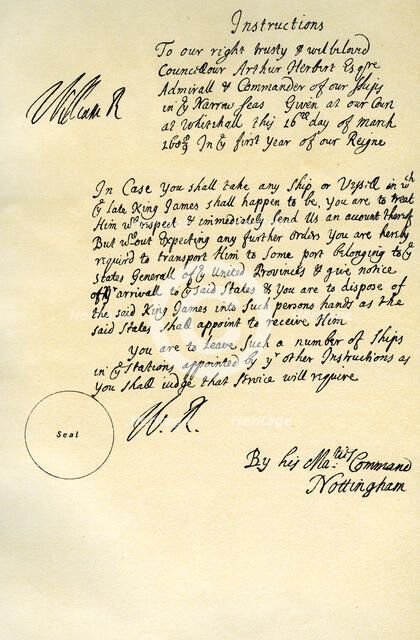 Instructions
To our right trusty & welbeloved
Councellour Arthur Herbert Esqre
Admirall & Commander of our Ships
in ye Narrow seas Given at our Court
at Whitehall this 16th day of March
168 8/9 In ye first year of our Reigne
William R
In Case You shall take any Ship or Vessell in wch
ye late King James shall happen to be, You are to treat
Him wth respect & immediately send Us an account thereof
But wthout Expecting any further orders You are hereby
requird to transport Him to some port belonging to ye
States Generall of ye United Provinces & give notice
of yr arrivall to ye said States & You are to dispose of
the said King James into Such persons hands as the
said States shall appoint to receive Him
You are to leave Such a number of Ships
in ye Stations appointed by yr other Instructions as
You shall judge that service will require
W. R.
Seal
By his Ma:ties Command
Nottingham
Heritage